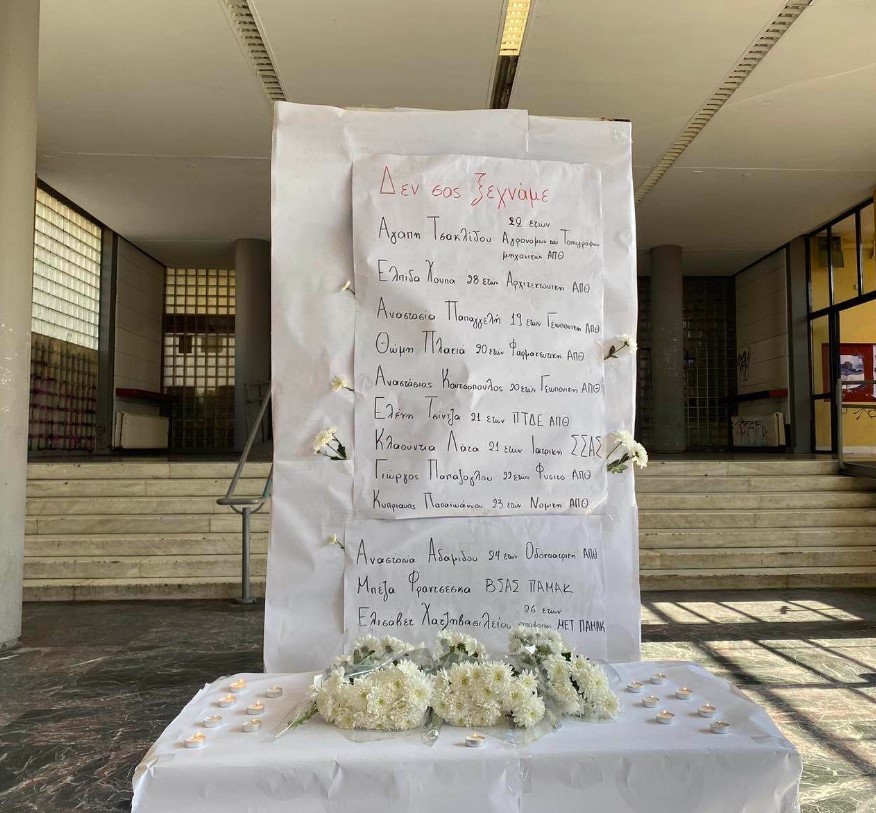 Δεν σας ξεχνάμε
22 ετων
Αγαπη Τσακλίδου Αγρονομων και Τοπογραφων
μηχανικων ΑΠΘ
Ελπιδα Χουπα 28 ετων Αρχιτεκτονικη ΑΠΘ
Αναστασια Παπαγγελή 19 ετων Γεωπονικη ΑΠΘ
Θώμη Πλακιά 20 ετων Φαρμακευτικη ΑΠΘ
Αναστάσιος Κουτσοπουλος 20 ετων Γεωπονικη ΑΠΘ
Ελένη Τσίντζα 21 ετων ΠΤΔΕ ΑΠΘ
Κλαούντια Λάτα 21 ετων Ιατρικη ΣΣΑΣ
Γιωργος Παπαζογλου 22 ετων Φυσικο ΑΠΘ
Κυπριανος Παπαϊωάννου 23 ετων Νομικη ΑΠΘ
Αναστασία Αδαμιδου 24 ετων Οδοντιατρικη ΑΠΘ
Μπεζα Φραντσεσκα ΒΣΑΣ ΠΑΜΑΚ
26 ετων
Ελισαβετ Χατζηβασιλείου ΜΕΤ ΠΑΜΑΚ